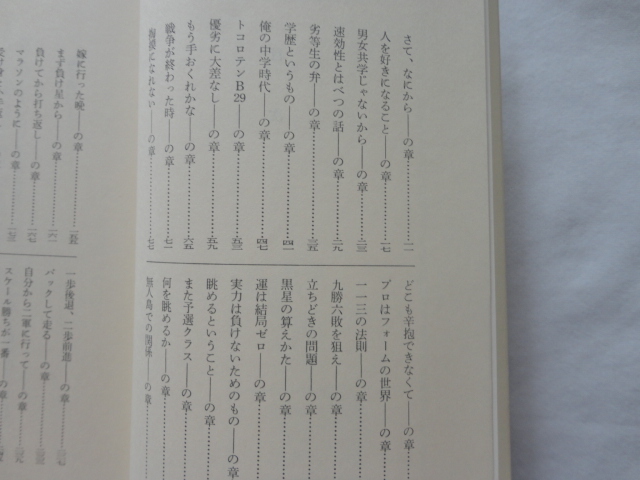 さて、なにから——の章………一一
人を好きになること——の章………一七
男女共学じゃないから——の章………二三
速効性とはべつの話——の章………二九
劣等生の弁——の章………三五
学歴というもの——の章………四一
俺の中学時代——の章………四七
トコロテンB29——の章………五三
優劣に大差なし——の章………五九
もう手おくれかな——の章………六五
戦争が終わった時——の章………七一
になれない——の章………七七
どこも辛抱できなくて——の章
プロはフォームの世界——の章
一一三の法則——の章
九勝六敗を狙え——の章
立ちどきの問題——の章
黒星の算えかた——の章
運は結局ゼロ——の章
実力は負けないためのもの——の章
眺めるということ——の章
また予選クラス——の章
何を眺めるか——の章
無人島での——の章
嫁に行った晩——の章………一五五
まず負け星から——の章………一六一
負けてから打ち返し——の章………一六七
マラソンのように——の章………一七三
一歩後退、二歩前進——の章………二〇七
バックして走る——の章………二一三
自分から二軍に行って——の章………二一九
スケール勝ちが一番——の章………二二五